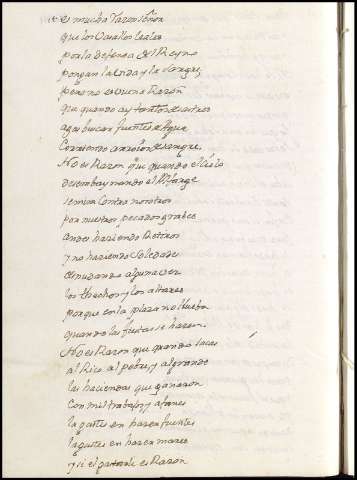 es mucha razon señor
que los Vasallos leales
por la defensa del Reyno
pongan la vida y la sangre,
pero no es buena Razon
que quando ay tantos desastres
agas buscar fuentes de Agua
Corriendo arroios de sangre.
No es Razon que quando el cielo
desembaynando el Alfange
se mira contra nosotros
por nuestros pecados grabes
andes haziendo Retiros
y no haziendo Soledades
mudando alguna vez
los thechos y los altares
porque en la plaza no llueba
quando las fiestas se hazen.
No es Razon que quando sacas
al Rico al pobre, y al grande
las haciendas que ganaron
Con mil trabajos y afanes
la gastes en hazer fuentes
la gastes en hazer mares
y si el gastarla es Razon